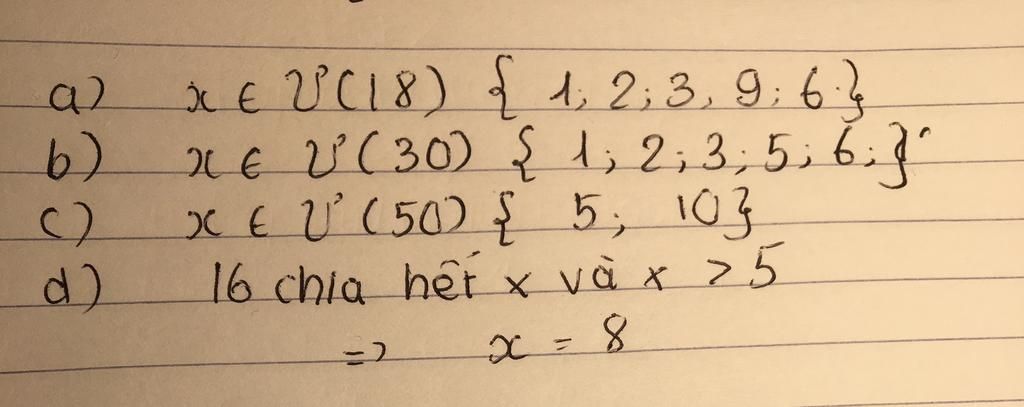 a) x ∈ Ư(18) { 1; 2; 3, 9; 6.}
b) x ∈ Ư(30) { 1; 2; 3; 5; 6; }
c) x ∈ Ư(50) { 5; 10}
d) 16 chia hết x và x > 5
=> x = 8